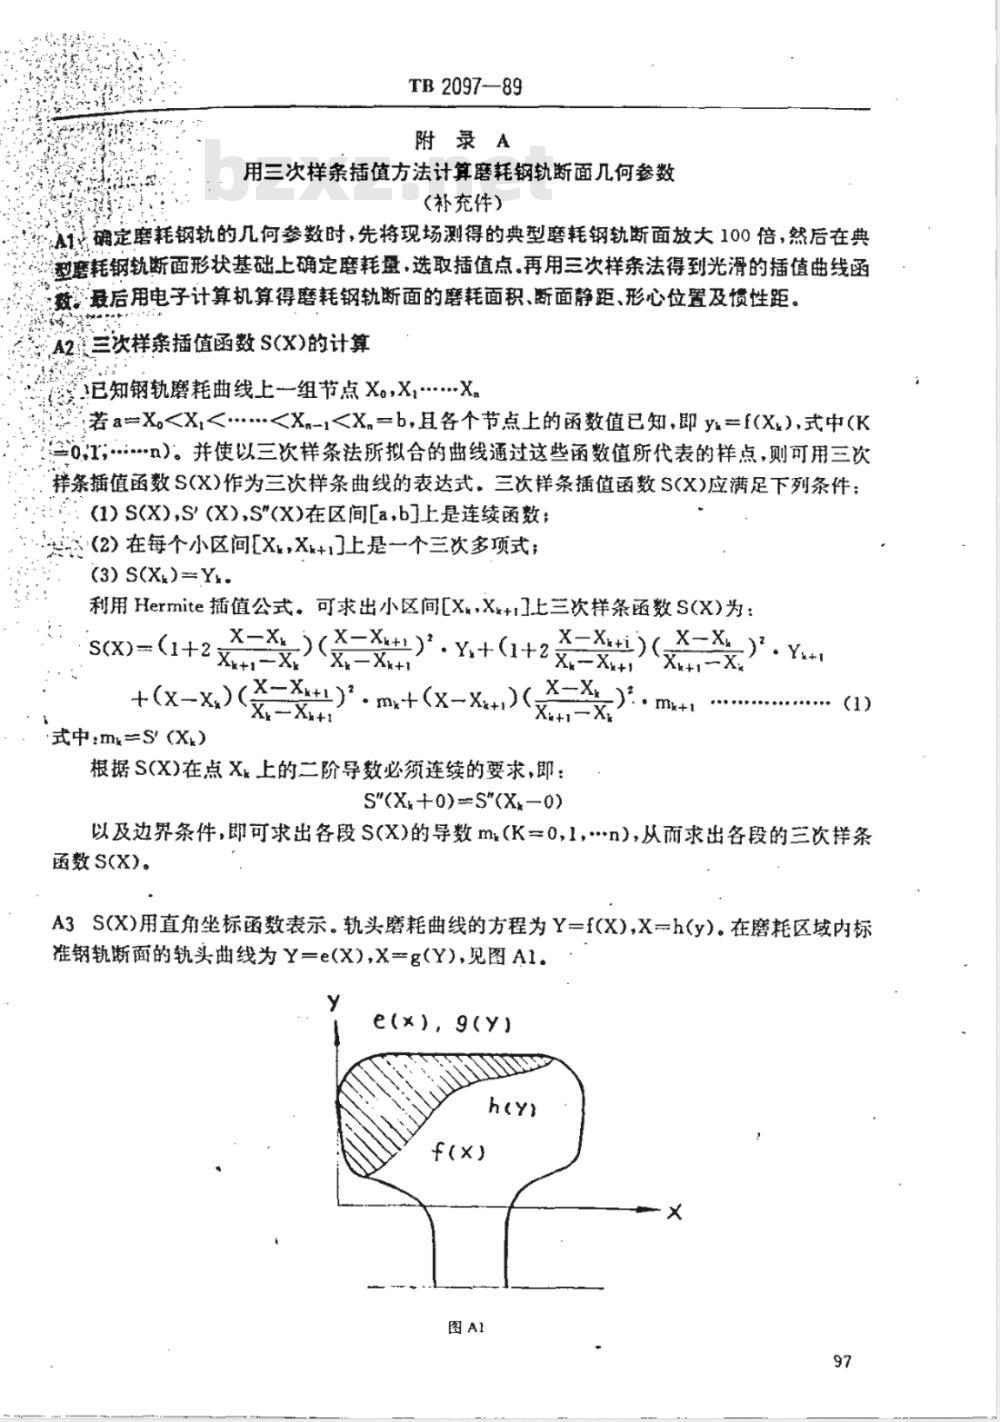 TB 2097—89
附 录 A
用三次样条插值方法计算磨耗钢轨断面几何参数
(补充件)
A1 确定磨耗钢轨的几何参数时,先将现场测得的典型磨耗钢轨断面放大 100 倍,然后在典
型磨耗钢轨断面形状基础上确定磨耗量,选取插值点。再用三次样条法得到光滑的插值曲线函
数。最后用电子计算机算得磨耗钢轨断面的磨耗面积、断面静距、形心位置及惯性距。
A2 三次样条插值函数 S(X)的计算
已知钢轨磨耗曲线上一组节点 X₀,X₁……Xₙ
若 a=X₀<X₁<……<Xₙ₋₁<Xₙ=b,且各个节点上的函数值已知,即 yₖ=f(Xₖ),式中(K
=0,1,……n)。并使以三次样条法所拟合的曲线通过这些函数值所代表的样点,则可用三次
样条插值函数 S(X)作为三次样条曲线的表达式。三次样条插值函数 S(X)应满足下列条件:
(1) S(X),S′(X),S″(X)在区间[a,b]上是连续函数;
(2) 在每个小区间[Xₖ,Xₖ₊₁]上是一个三次多项式;
(3) S(Xₖ)=Yₖ。
利用 Hermite 插值公式。可求出小区间[Xₖ,Xₖ₊₁]上三次样条函数 S(X)为:
S(X)=(1+2 (X−Xₖ)/(Xₖ₊₁−Xₖ))((X−Xₖ₊₁)/(Xₖ−Xₖ₊₁))²·Yₖ+(1+2 (X−Xₖ₊₁)/(Xₖ−Xₖ₊₁))((X−Xₖ)/(Xₖ₊₁−Xₖ))²·Yₖ₊₁
+(X−Xₖ)((X−Xₖ₊₁)/(Xₖ−Xₖ₊₁))²·mₖ+(X−Xₖ₊₁)((X−Xₖ)/(Xₖ₊₁−Xₖ))²·mₖ₊₁ ………………… (1)
式中:mₖ=S′(Xₖ)
根据 S(X)在点 Xₖ 上的二阶导数必须连续的要求,即:
S″(Xₖ+0)=S″(Xₖ−0)
以及边界条件,即可求出各段 S(X)的导数 mₖ(K=0,1,…n),从而求出各段的三次样条
函数 S(X)。
A3 S(X)用直角坐标函数表示。轨头磨耗曲线的方程为 Y=f(X),X=h(y)。在磨耗区域内标
准钢轨断面的轨头曲线为 Y=e(X),X=g(Y),见图 A1。
Y
e(x), g(Y)
h(Y)
f(x)
X
图 A1
97
bzxz.net